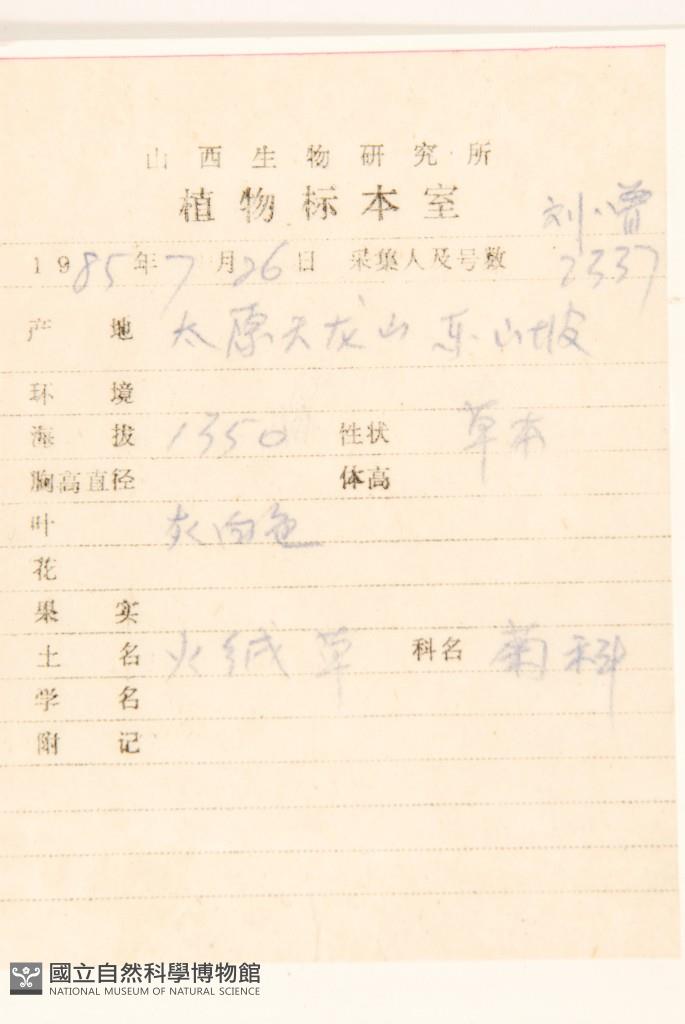 山西生物研究所
植物标本室
刘、曾
1985年7月26日 采集人及号数 2337
产地 太原天龙山东山坡
环境
海拔 1350 性状 草本
胸高直径 体高
叶 灰白色
花
果实
土名 火绒草 科名 菊科
学名
附记
國立自然科學博物館
NATIONAL MUSEUM OF NATURAL SCIENCE